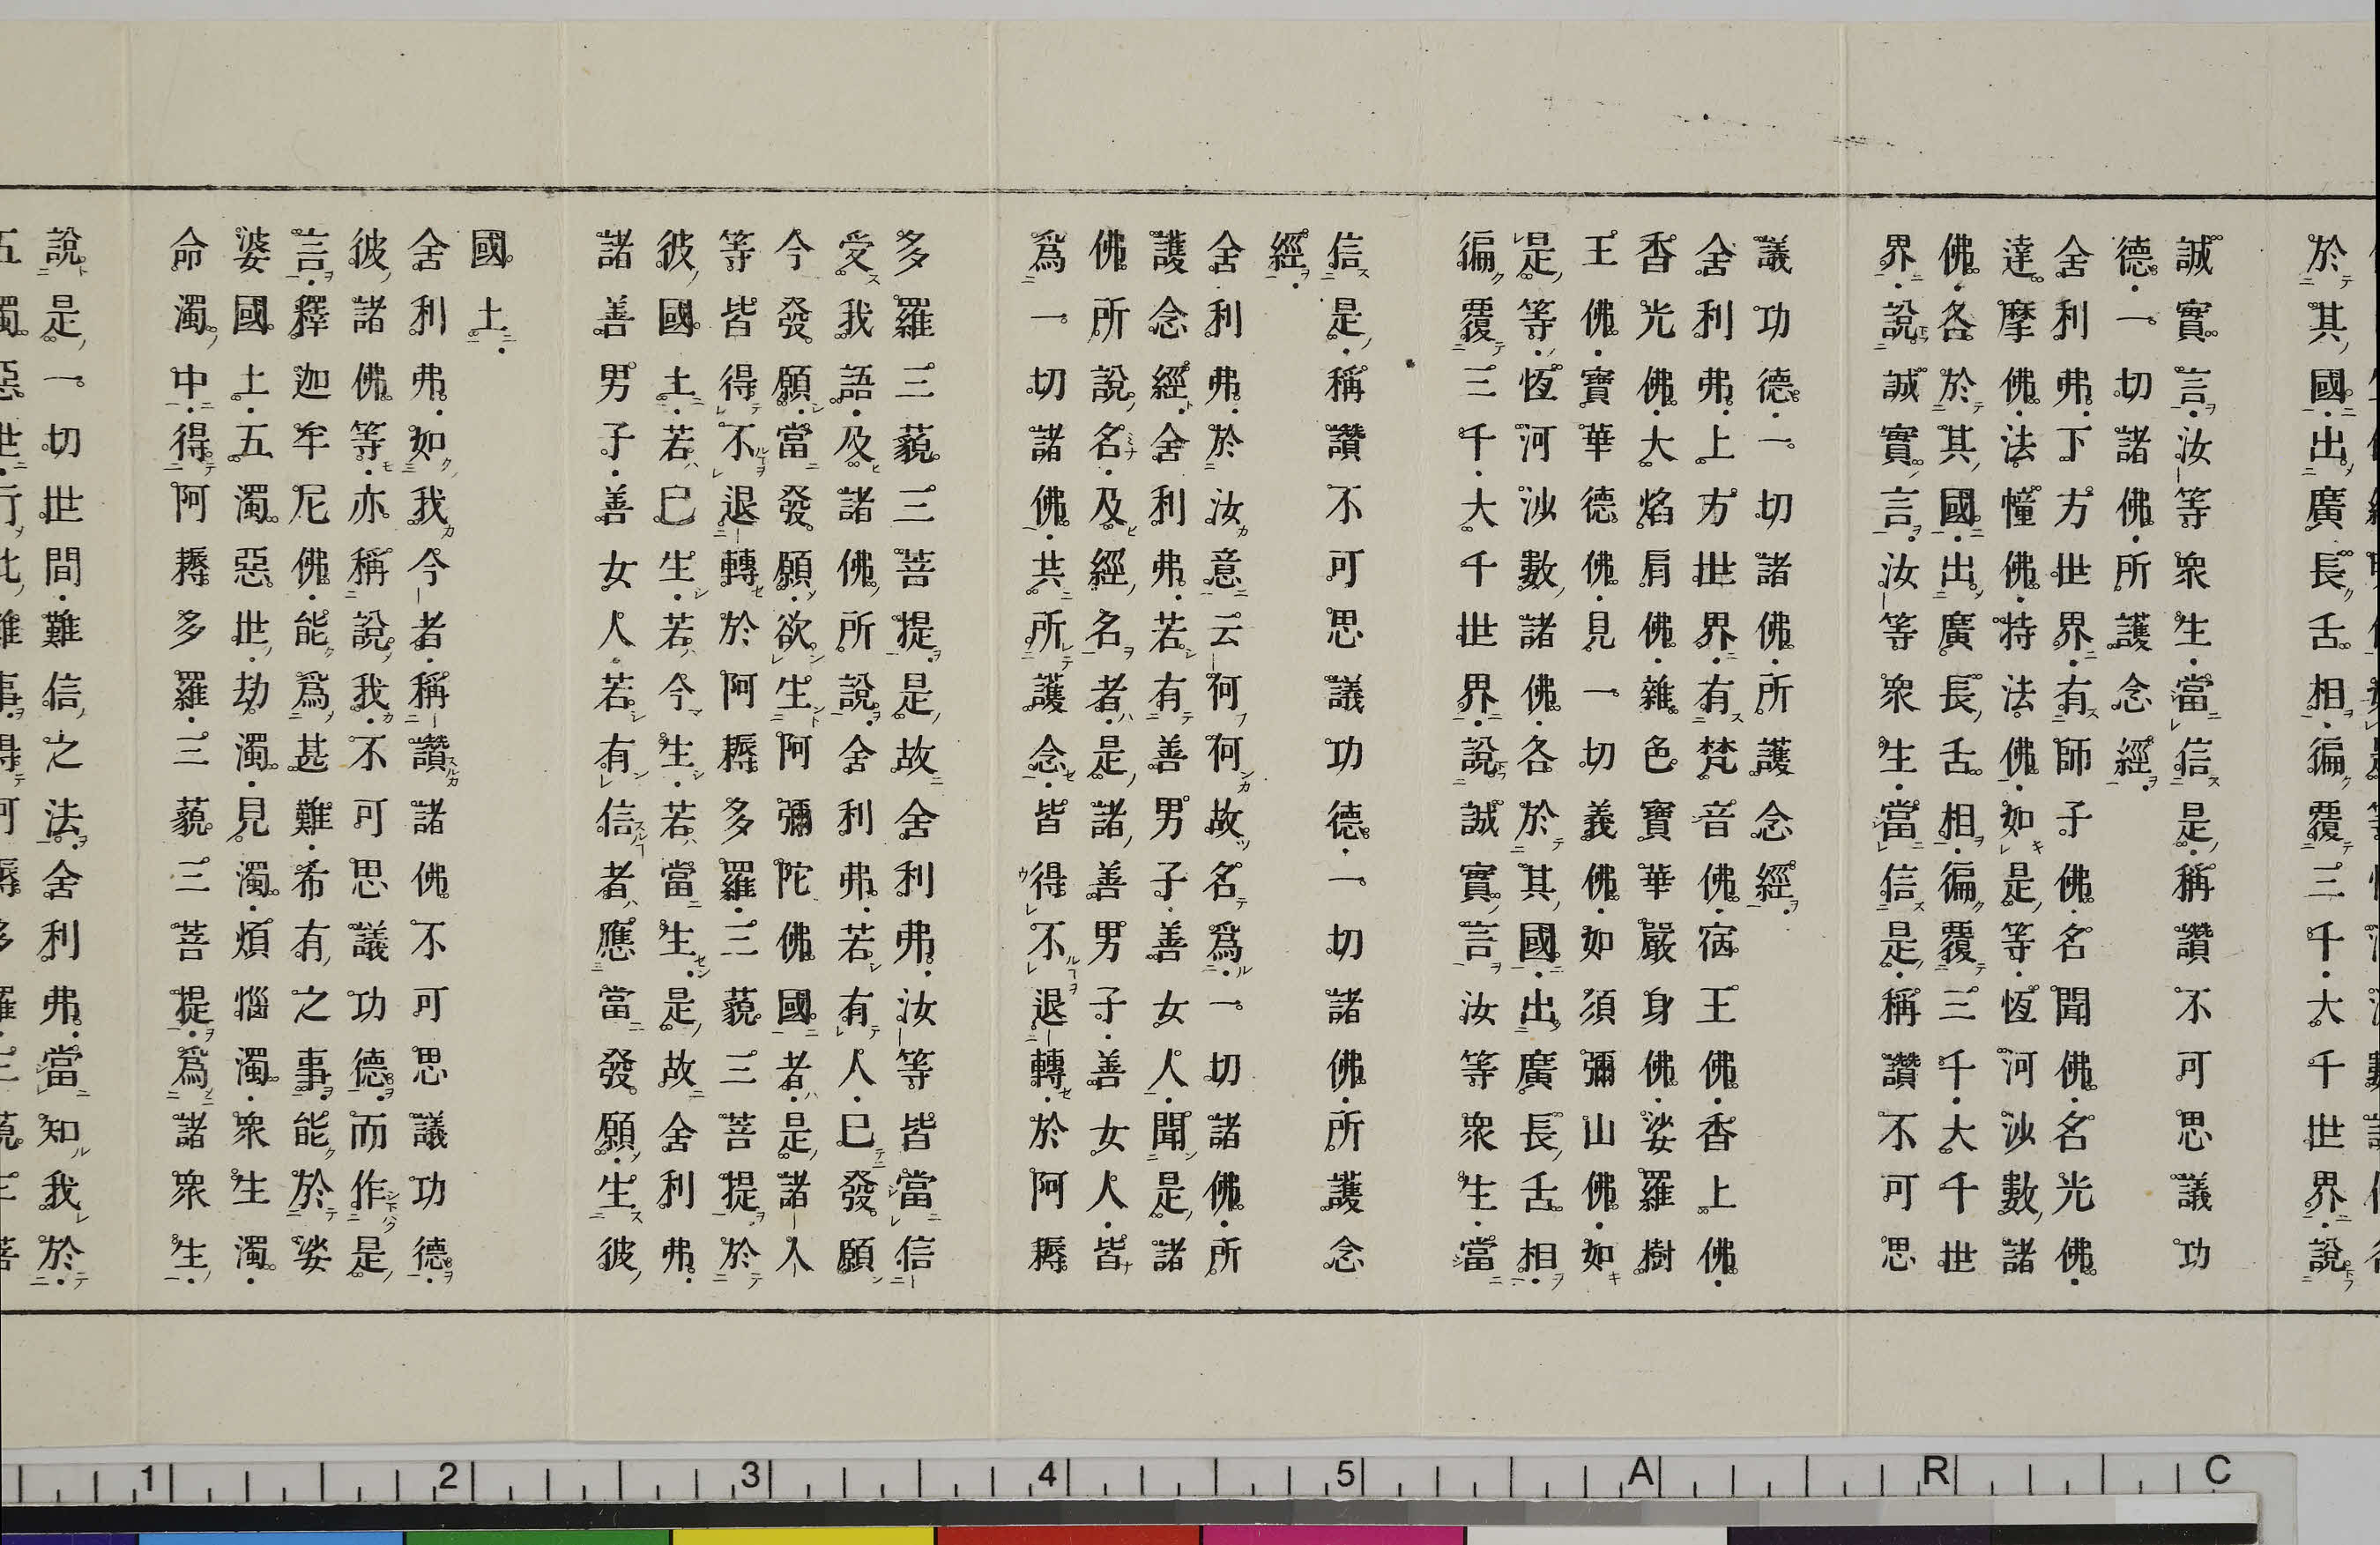 於其國出廣長舌相徧覆三千大千世界說
誠實言汝等衆生當信是稱讚不可思議功
德一切諸佛所護念經
舍利弗下方世界有師子佛名聞佛名光佛
達摩佛法幢佛持法佛如是等恆河沙數諸
佛各於其國出廣長舌相徧覆三千大千世
界說誠實言汝等衆生當信是稱讚不可思
議功德一切諸佛所護念經
舍利弗上方世界有梵音佛宿王佛香上佛
香光佛大焰肩佛雜色寶華嚴身佛娑羅樹
王佛寶華德佛見一切義佛如須彌山佛如
是等恆河沙數諸佛各於其國出廣長舌相
徧覆三千大千世界說誠實言汝等衆生當
信是稱讚不可思議功德一切諸佛所護念
經
舍利弗於汝意云何何故名爲一切諸佛所
護念經舍利弗若有善男子善女人聞是諸
佛所說名及經名者是諸善男子善女人皆
爲一切諸佛共所護念皆得不退轉於阿耨
多羅三藐三菩提是故舍利弗汝等皆當信
受我語及諸佛所說舍利弗若有人巳發願
今發願當發願欲生阿彌陀佛國者是諸人
等皆得不退轉於阿耨多羅三藐三菩提於
彼國土若巳生若今生若當生是故舍利弗
諸善男子善女人若有信者應當發願生彼
國土
舍利弗如我今者稱讚諸佛不可思議功德
彼諸佛等亦稱說我不可思議功德而作是
言釋迦牟尼佛能爲甚難希有之事能於娑
婆國土五濁惡世劫濁見濁煩惱濁衆生濁
命濁中得阿耨多羅三藐三菩提爲諸衆生
說是一切世間難信之法舍利弗當知我於
五濁惡世行此難事得阿耨多羅三藐三菩
1 2 3 4 5 A R C